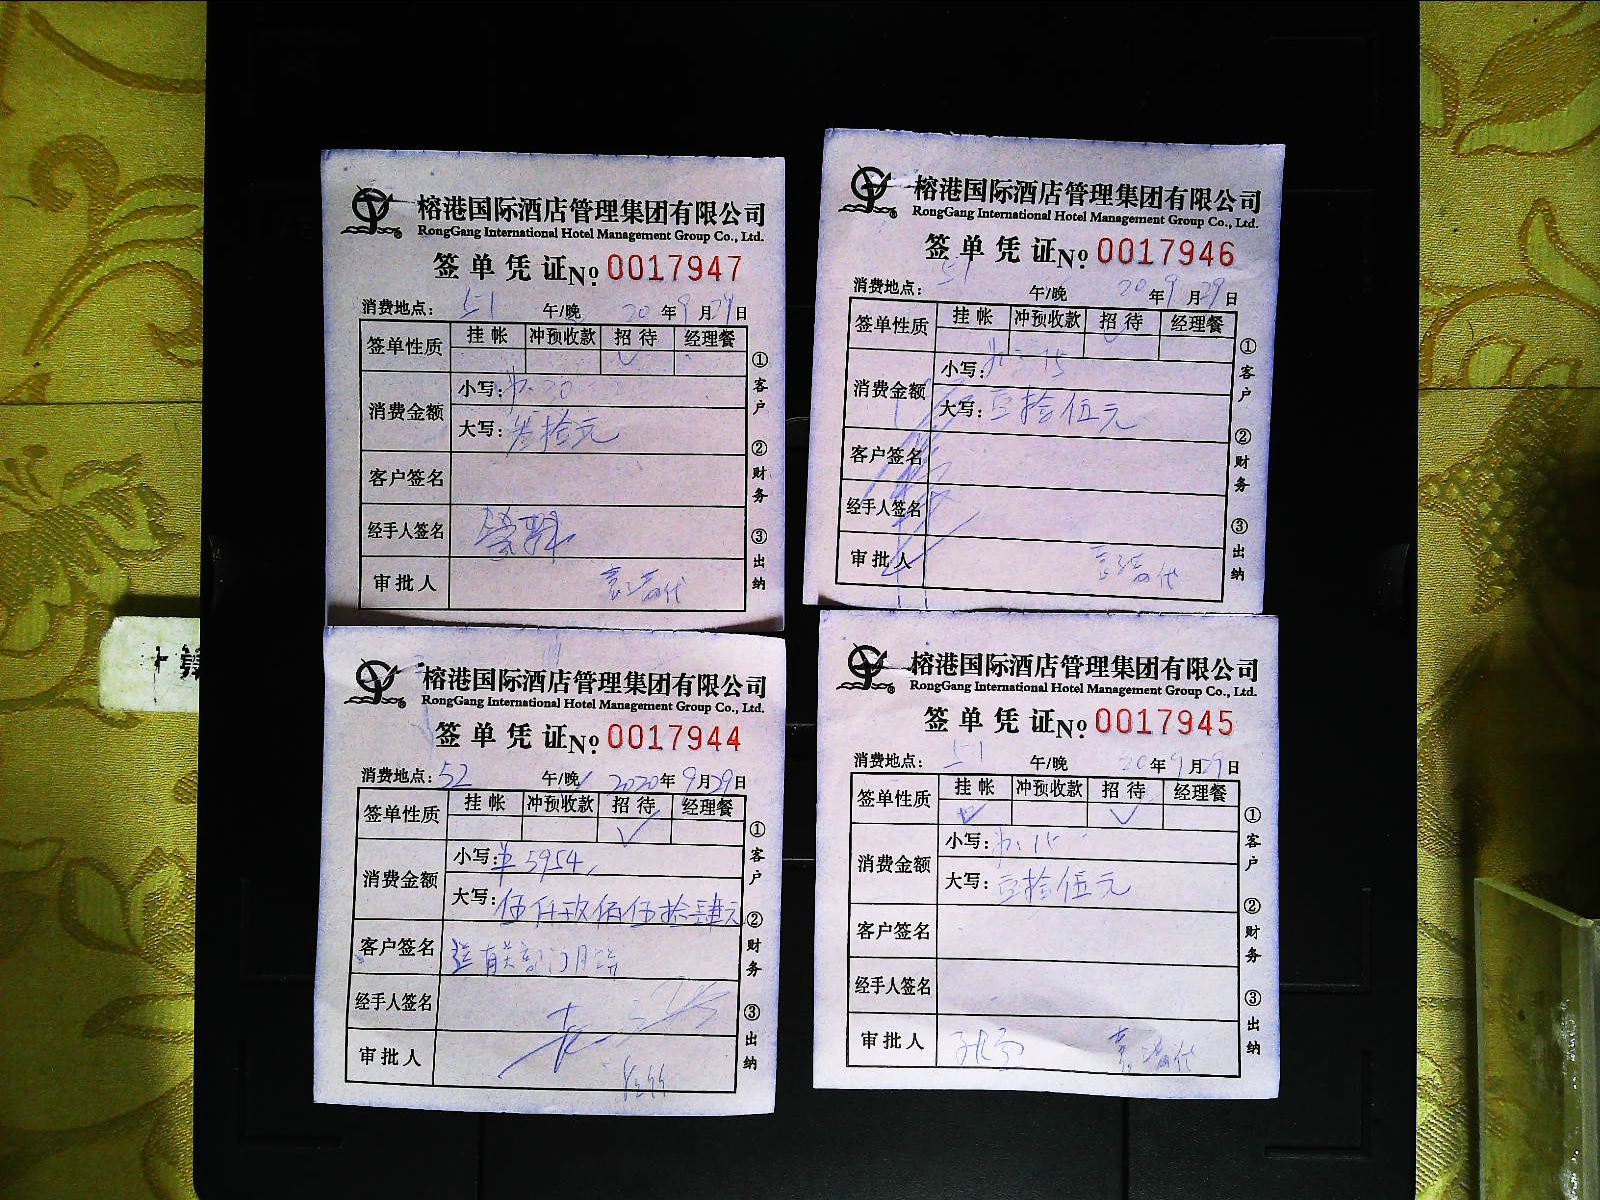 榕港国际酒店管理集团有限公司
RongGang International Hotel Management Group Co., Ltd.
签单凭证 No 0017947
消费地点: 51 午/晚 20年9月29日
签单性质 挂帐 冲预收款 招待 经理餐
消费金额
小写: ¥:30
大写: 叁拾元
客户签名
经手人签名
审批人
①客户 ②财务 ③出纳
榕港国际酒店管理集团有限公司
RongGang International Hotel Management Group Co., Ltd.
签单凭证 No 0017946
消费地点: 51 午/晚 20年9月29日
签单性质 挂帐 冲预收款 招待 经理餐
消费金额
小写: ¥:15
大写: 壹拾伍元
客户签名
经手人签名
审批人
①客户 ②财务 ③出纳
榕港国际酒店管理集团有限公司
RongGang International Hotel Management Group Co., Ltd.
签单凭证 No 0017944
消费地点: 52 午/晚 2020年9月29日
签单性质 挂帐 冲预收款 招待 经理餐
消费金额
小写: ¥5954
大写: 伍仟玖佰伍拾肆元
客户签名 送有关部门月饼
经手人签名
审批人
①客户 ②财务 ③出纳
榕港国际酒店管理集团有限公司
RongGang International Hotel Management Group Co., Ltd.
签单凭证 No 0017945
消费地点: 51 午/晚 20年9月29日
签单性质 挂帐 冲预收款 招待 经理餐
消费金额
小写: ¥:15
大写: 壹拾伍元
客户签名
经手人签名
审批人
①客户 ②财务 ③出纳